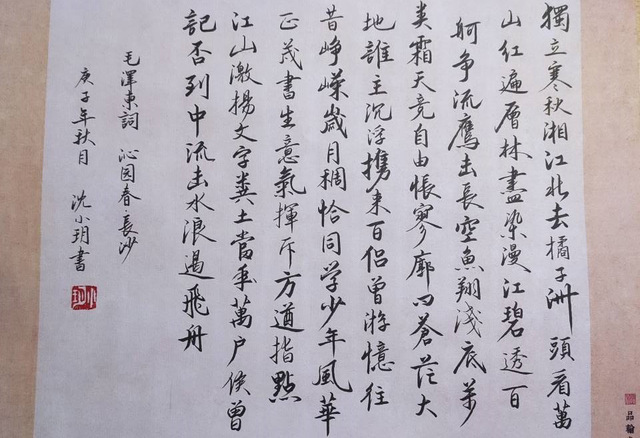 獨立寒秋湘江北去橘子洲頭看萬
山紅遍層林盡染漫江碧透百
舸争流鷹击長空魚翔淺底萬
类霜天竞自由悵寥廓问蒼茫大
地誰主沉浮携来百侣曾游憶往
昔峥嵘歲月稠恰同学少年風華
正茂書生意氣揮斥方遒指點
江山激揚文字粪土當年萬户侯曾
記否到中流击水浪遏飛舟
毛澤東詞 沁园春 長沙
庚子年秋月 沈小玥書